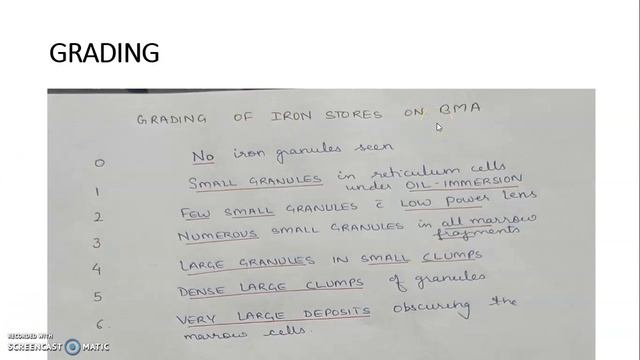 GRADING
GRADING OF IRON STORES ON BMA
0 No iron granules seen
1 SMALL GRANULES in reticulum cells
under OIL-IMMERSION
2 FEW SMALL GRANULES c̄ LOW POWER lens
3 NUMEROUS small granules in all marrow
fragments
4 LARGE GRANULES IN SMALL CLUMPS
5 DENSE LARGE CLUMPS of granules
6. VERY LARGE DEPOSITS obscuring the
marrow cells.
RECORDED WITH
SCREENCAST MATIC